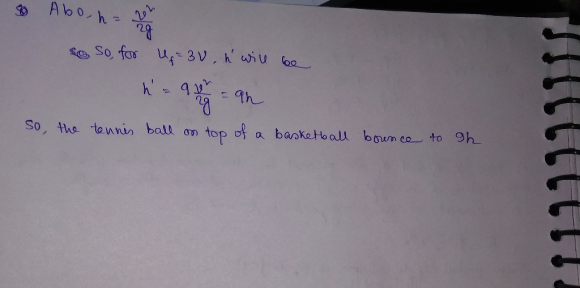 Also, h = v²/2g
So, for u_f = 3v, h' will be
h' = 9 v²/2g = 9h
So, the tennis ball on top of a basketball bounce to 9h